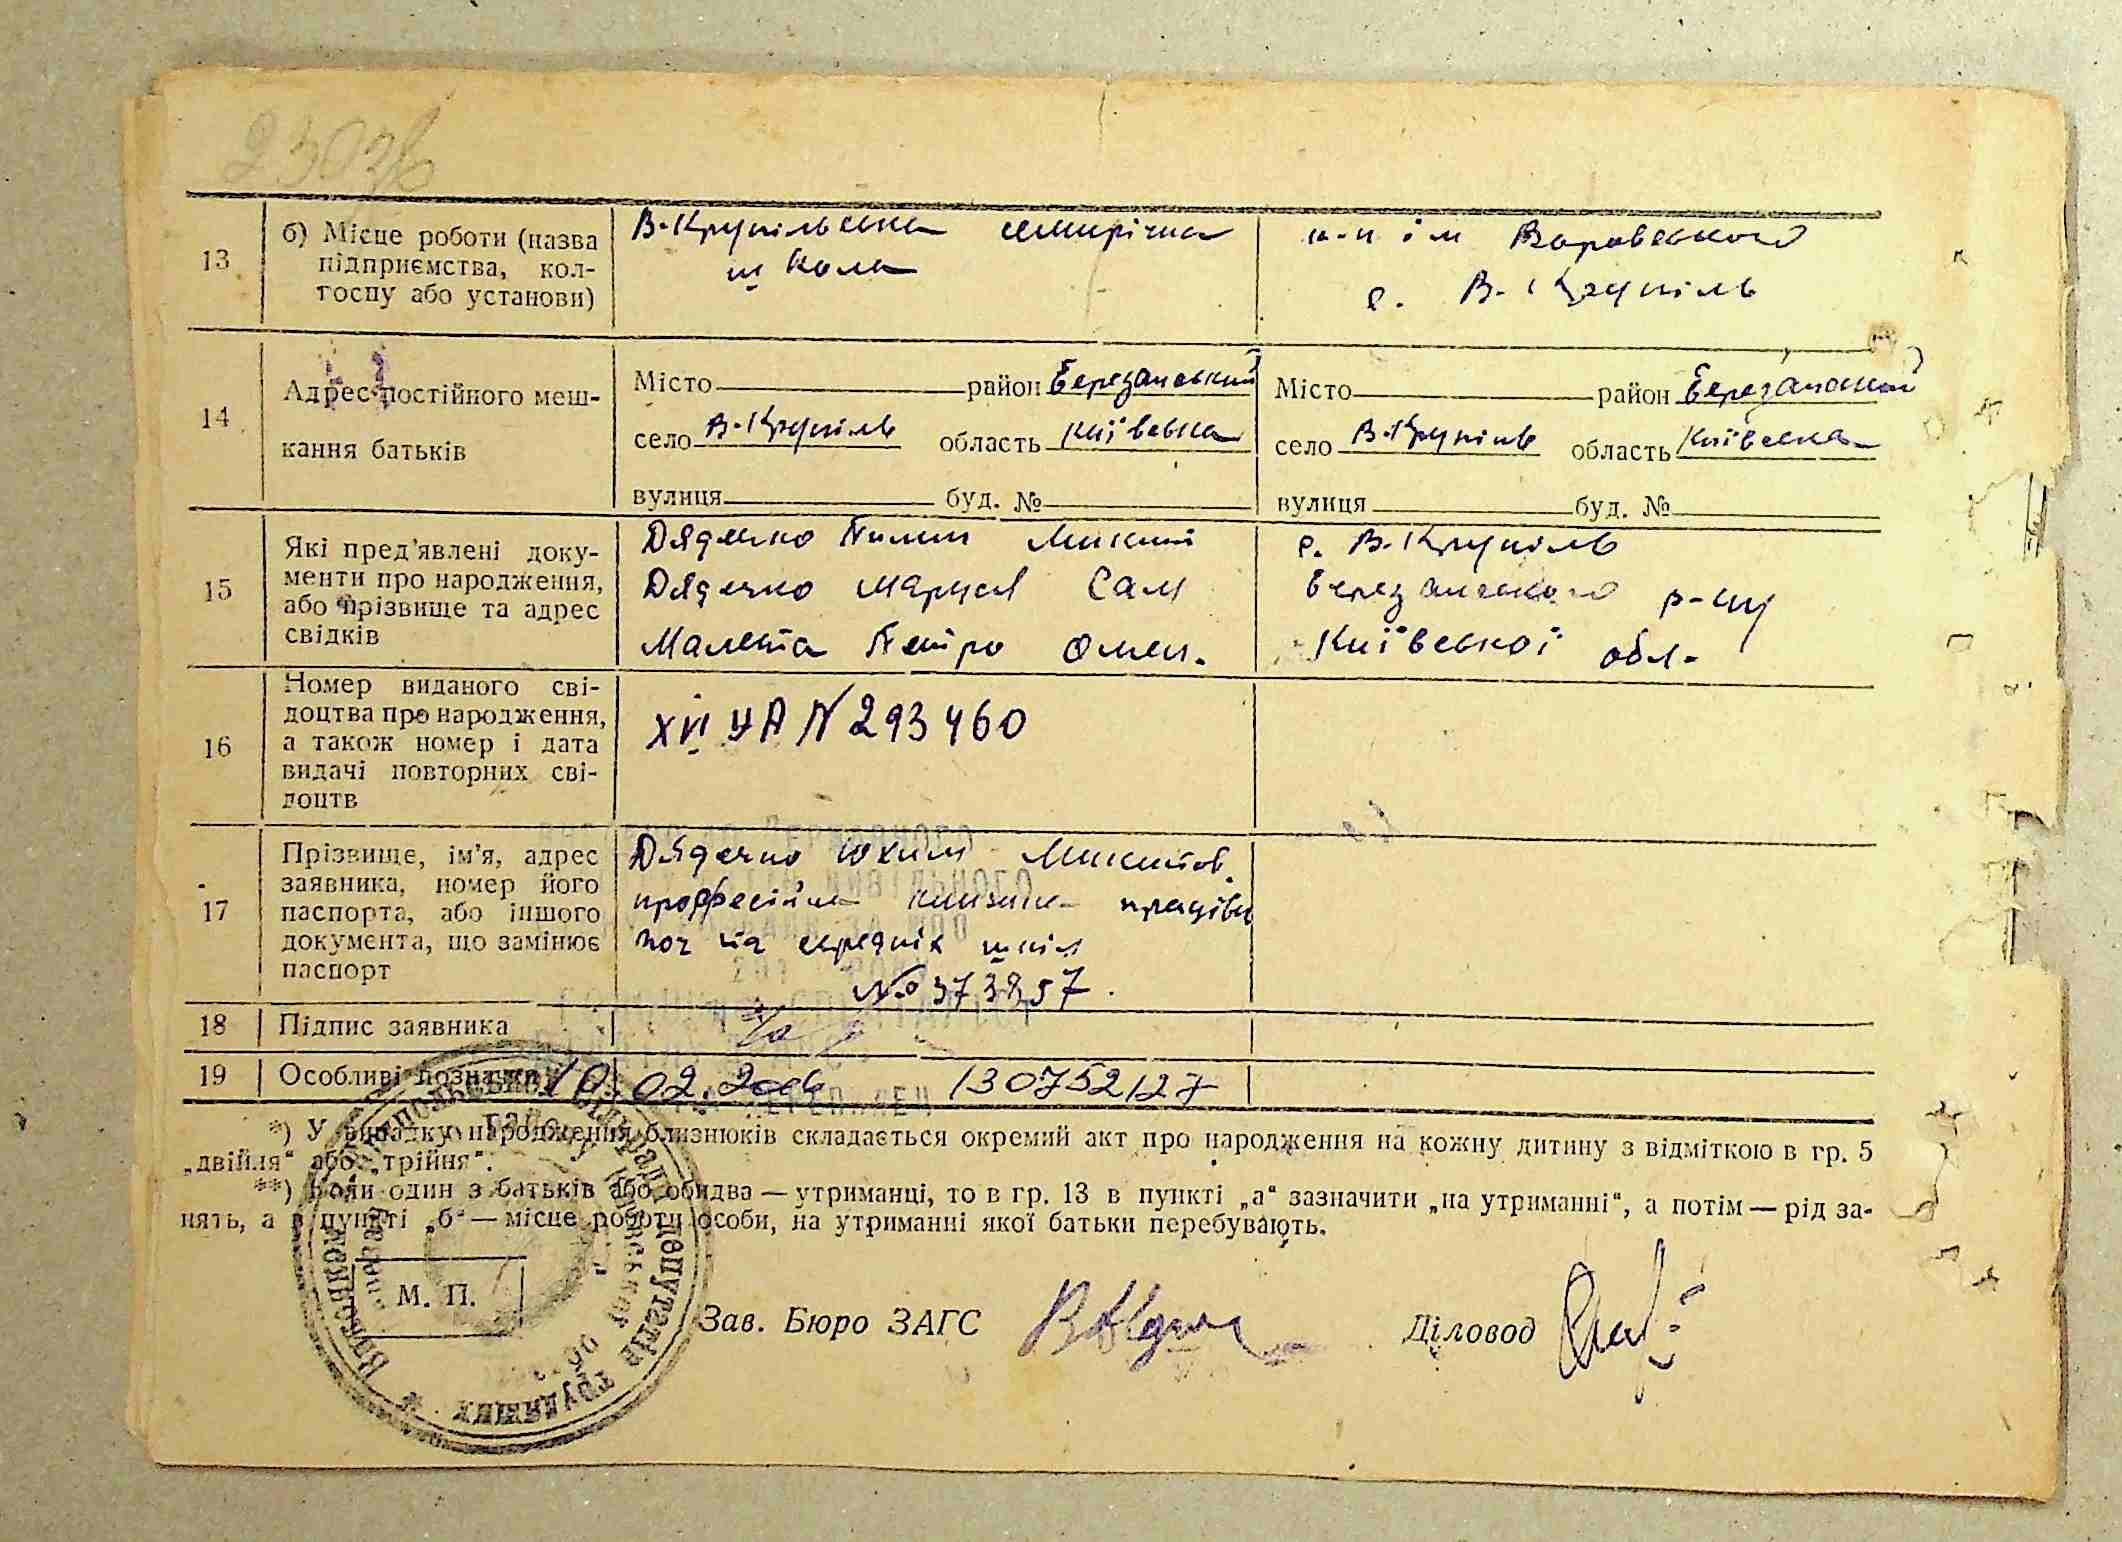 13
б) Місце роботи (назва
підприємства, кол-
госпу або установи)
В-Крупільська семирічна
школа
к-п ім Воровського
с. В-Крупіль
14
Адрес постійного меш-
кання батьків
Місто район Березанський
село В-Крупіль область Київська
вулиця буд. №
Місто район Березанський
село В-Крупіль область Київська
вулиця буд. №
15
Які пред'явлені доку-
менти про народження,
або прізвище та адрес
свідків
Дядечко Пилип
Дядечко Маруся Сам
Малета Петро Омел.
с. В-Крупіль
Березанського р-ну
Київської обл.
16
Номер виданого сві-
доцтва про народження,
а також номер і дата
видачі повторних сві-
доцтв
XVI УА N 293460
17
Прізвище, ім'я, адрес
заявника, номер його
паспорта, або іншого
документа, що замінює
паспорт
Дядечко Юхим Микитов.
професійна книжка праців
поч та середніх шкіл
№ 373857.
18 Підпис заявника
19 Особливі позначки 10.02.2006 130752127
*) У випадку народження близнюків складається окремий акт про народження на кожну дитину з відміткою в гр. 5
„двійля“ або „трійня“.
**) Коли один з батьків або обидва — утриманці, то в гр. 13 в пункті „а“ зазначити „на утриманні“, а потім — рід за-
нять, а в пункті „б“ — місце роботи особи, на утриманні якої батьки перебувають.
М. П.
Зав. Бюро ЗАГС
Діловод
депутатів трудящих